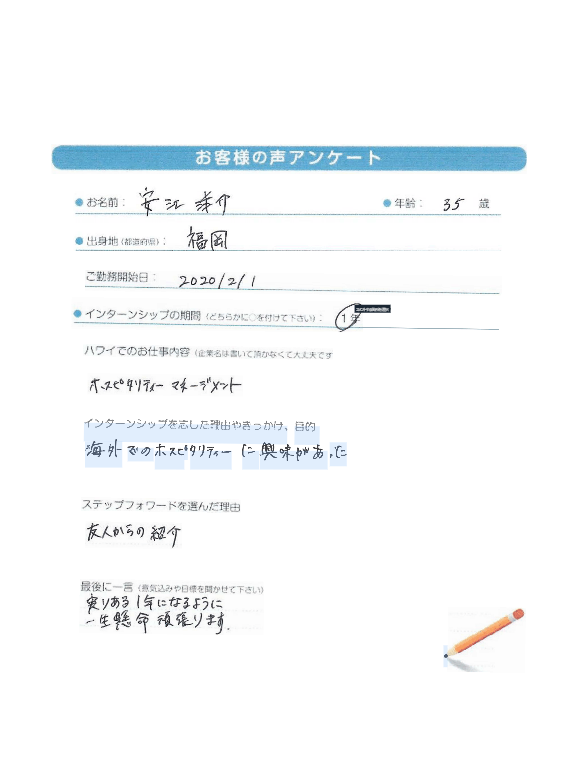 お客様の声アンケート
お名前： 安江 洋介 年齢： 35 歳
出身地（都道府県）： 福岡
ご勤務開始日： 2020/2/1
インターンシップの期間（どちらかに○を付けて下さい）： 1年
ハワイでのお仕事内容（企業名は書いて頂かなくて大丈夫です
ホスピタリティー マネージメント
インターンシップを志した理由やきっかけ、目的
海外でのホスピタリティーに興味があった
ステップフォワードを選んだ理由
友人からの紹介
最後に一言（意気込みや目標を聞かせて下さい）
実りある1年になるように
一生懸命頑張ります。